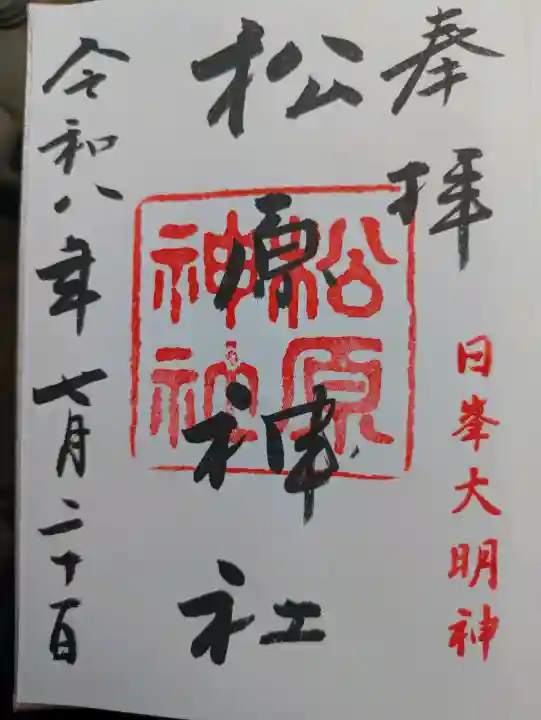 奉拝
日峯大明神
松原神社
松原神社
令和八年七月二十日